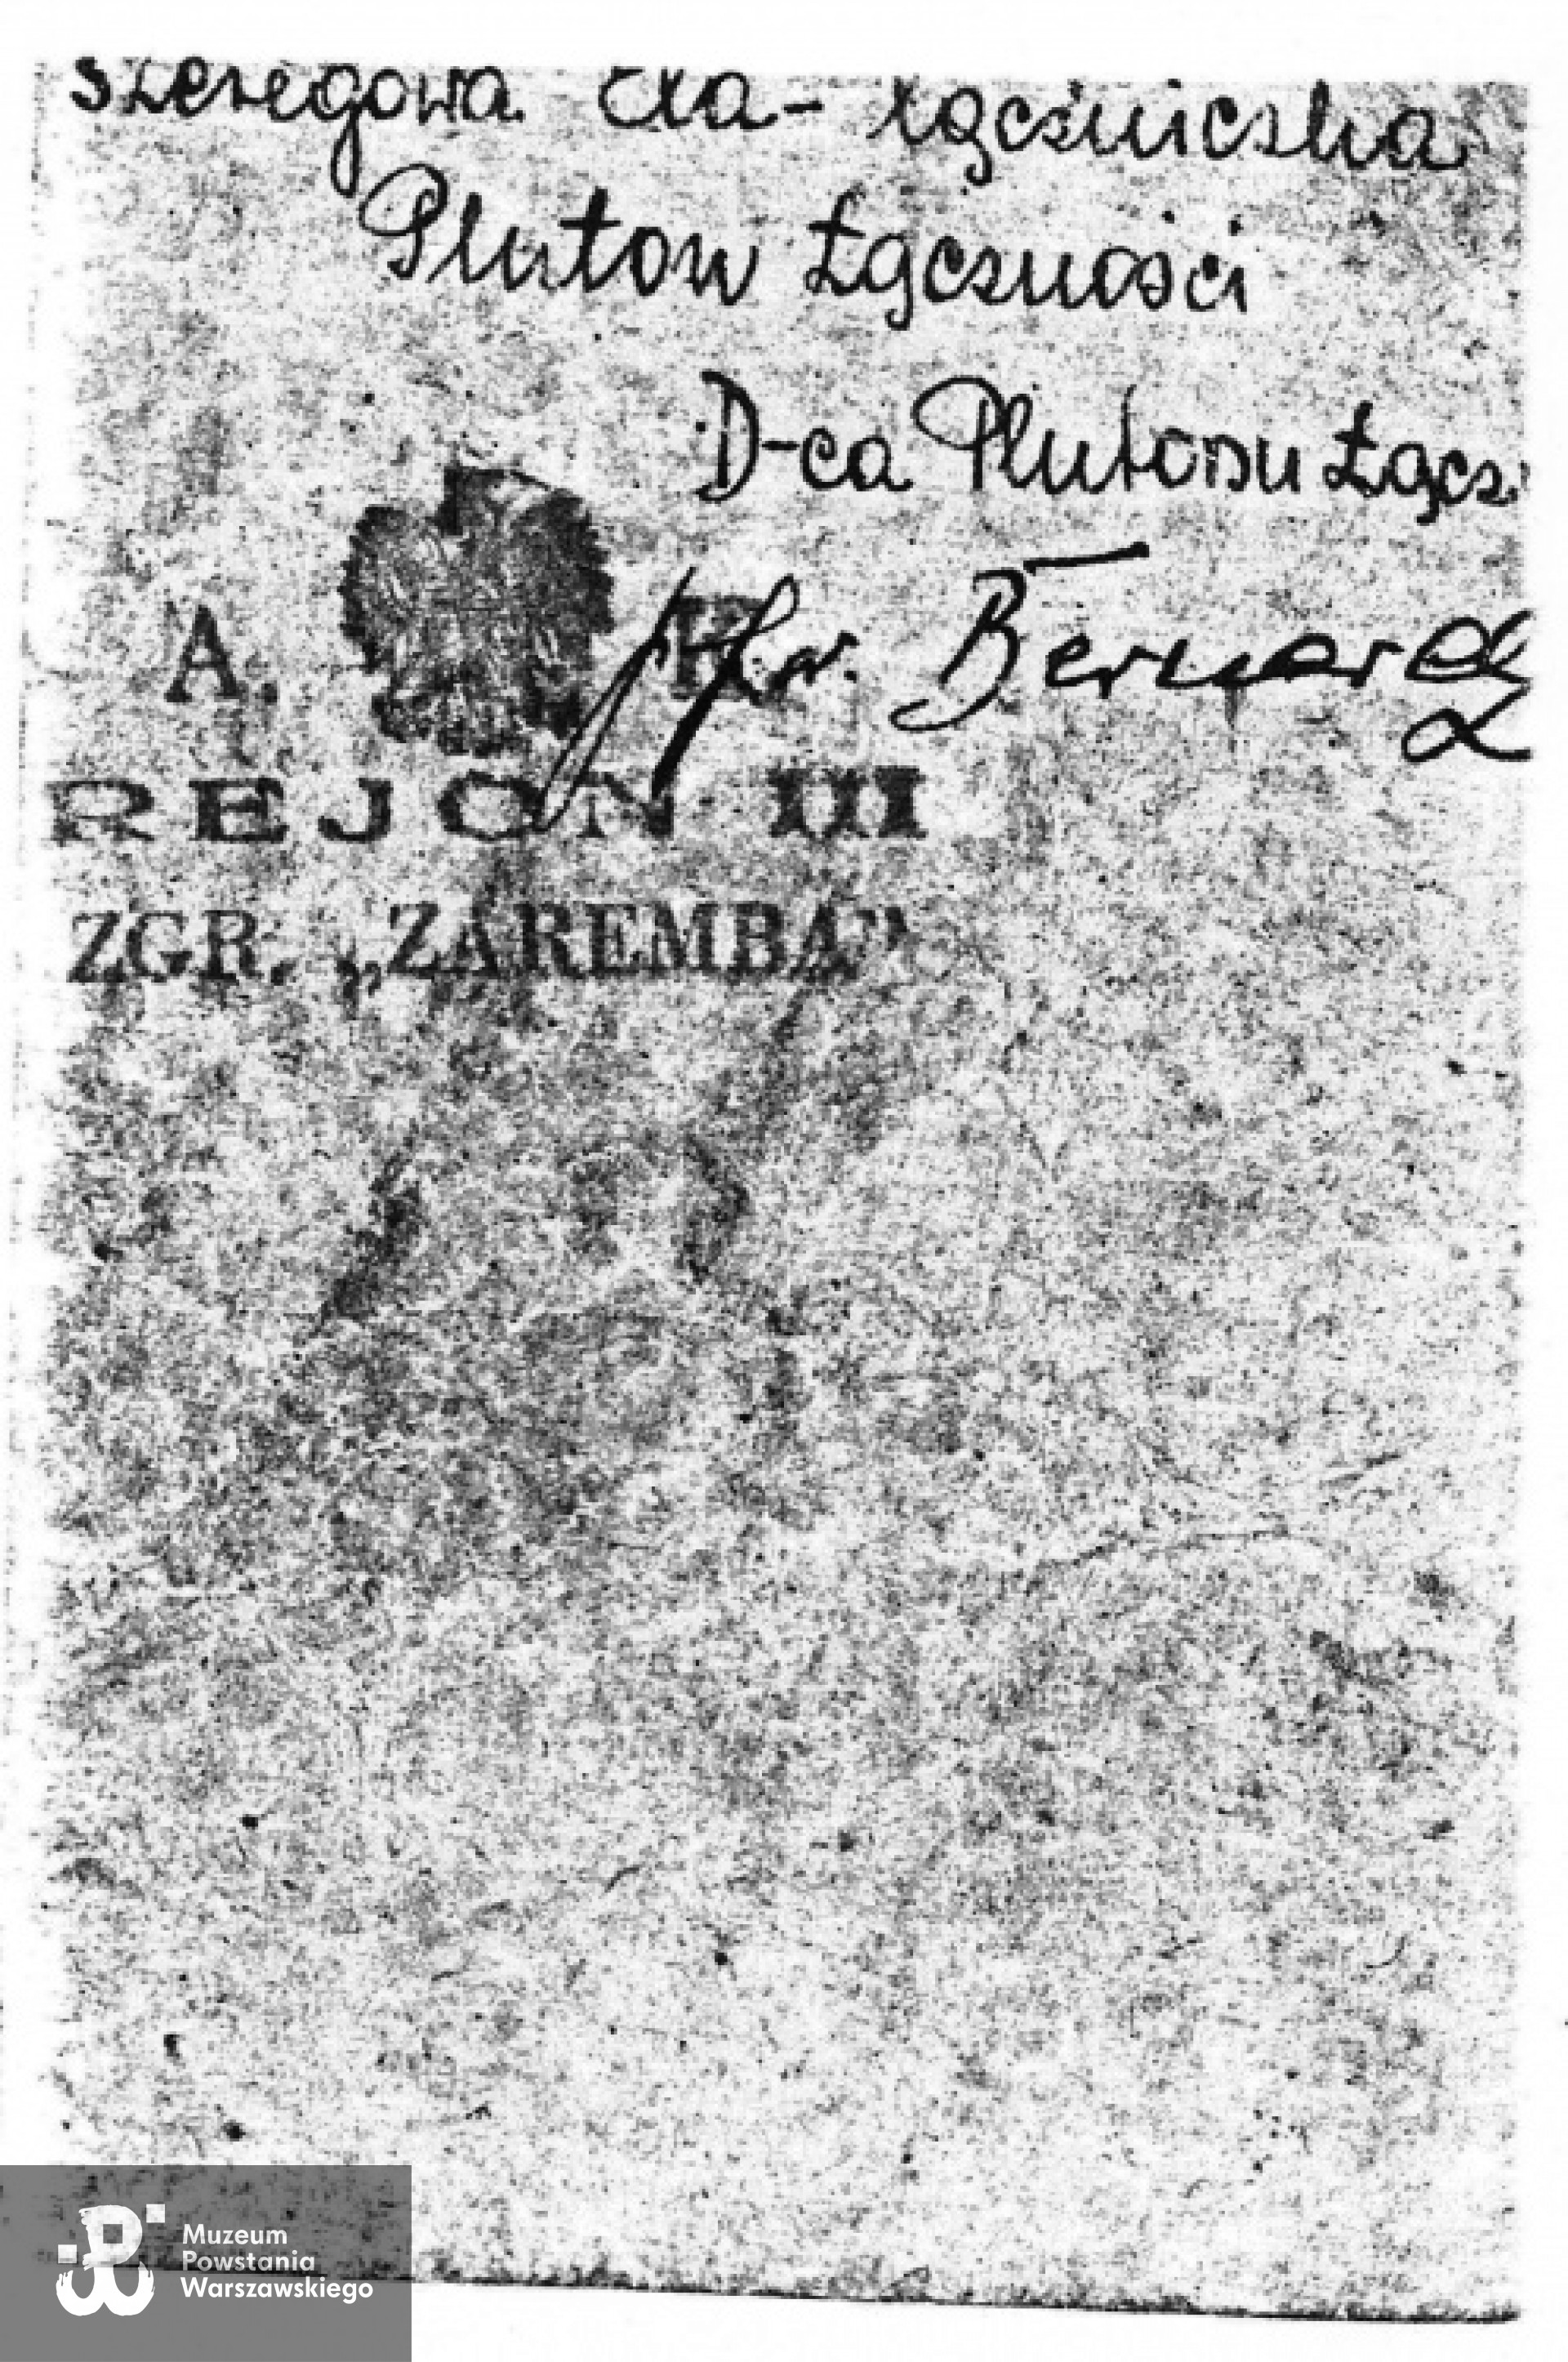 szeregowa Ela - łączniczka
Pluton Łączności
D-ca Plutonu Łącz.
A. K.
ppor. Bernard
REJON III
ZGR. „ZAREMBA”
Muzeum
Powstania
Warszawskiego